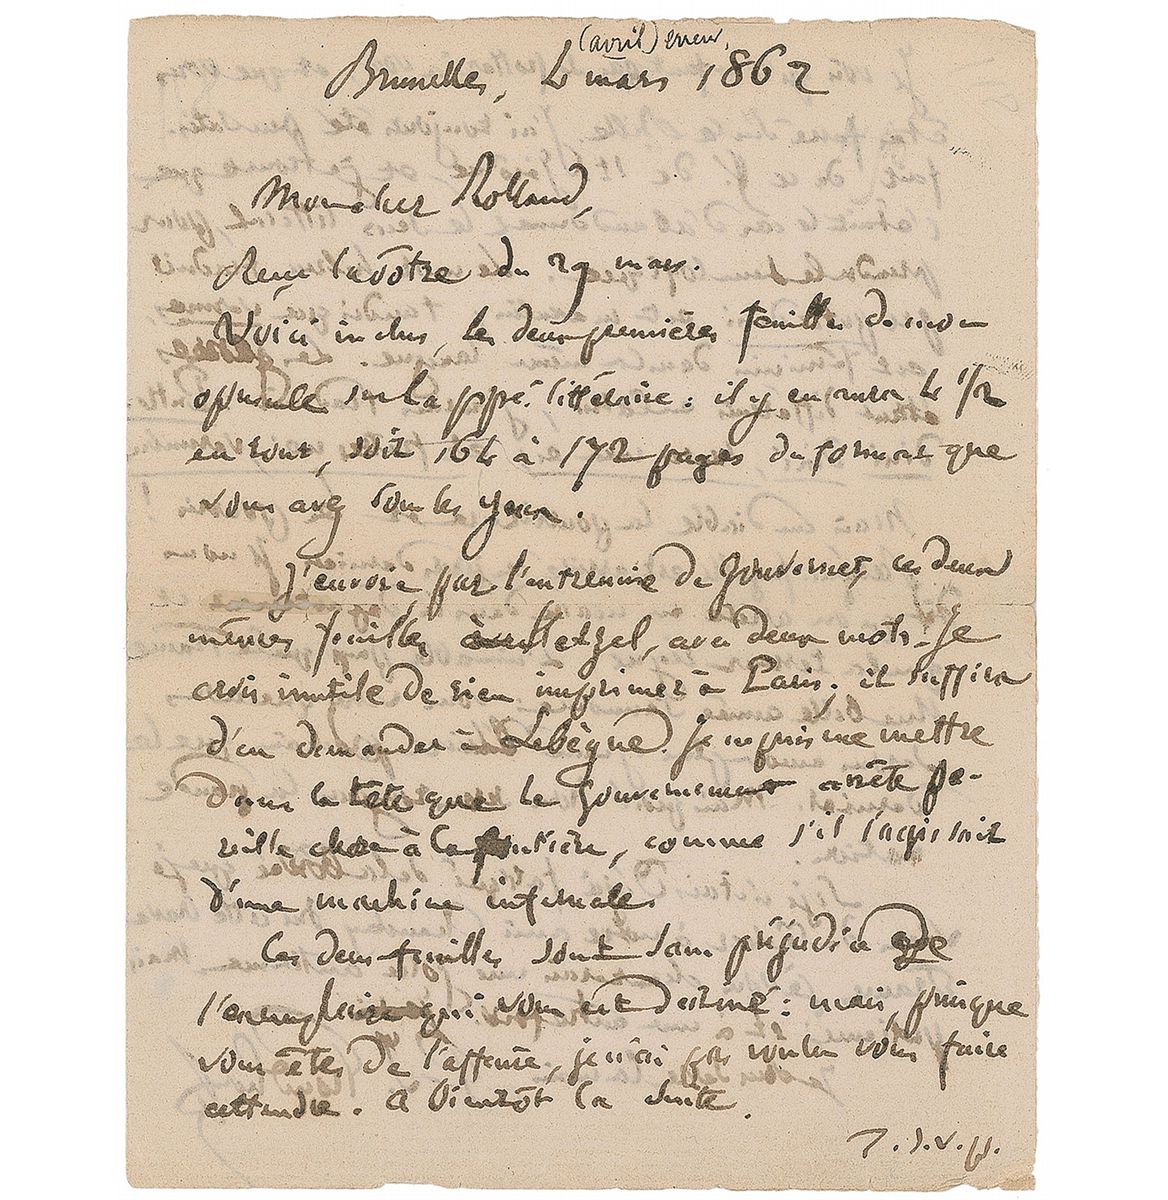 (avril) erreur,
Bruxelles, 4 mars 1862
Mon cher Rolland,
Reçu la vôtre du 29 mars.
Voici inclus, les deux premières feuilles de mon
opuscule sur la ppé. littéraire : il y en aura 4 1/2
en tout, soit 164 à 172 pages du format que
vous avez sous les yeux.
J'envoie, par l'entremise de Gouvernet, ces deux
mêmes feuilles à Hetzel, avec deux mots. Je
crois inutile de rien imprimer à Paris ; il suffira
d'en demander à Lebègue. Je ne puis me mettre
dans la tête que le gouvernement arrête pa-
reille chose à la frontière, comme s'il s'agissait
d'une machine infernale.
Ces deux feuilles sont sans préjudice de
l'exemplaire qui vous est destiné : mais, puisque
vous êtes de l'affaire, je n'ai pas voulu vous faire
attendre. A bientôt la suite.
T. S. V. P.